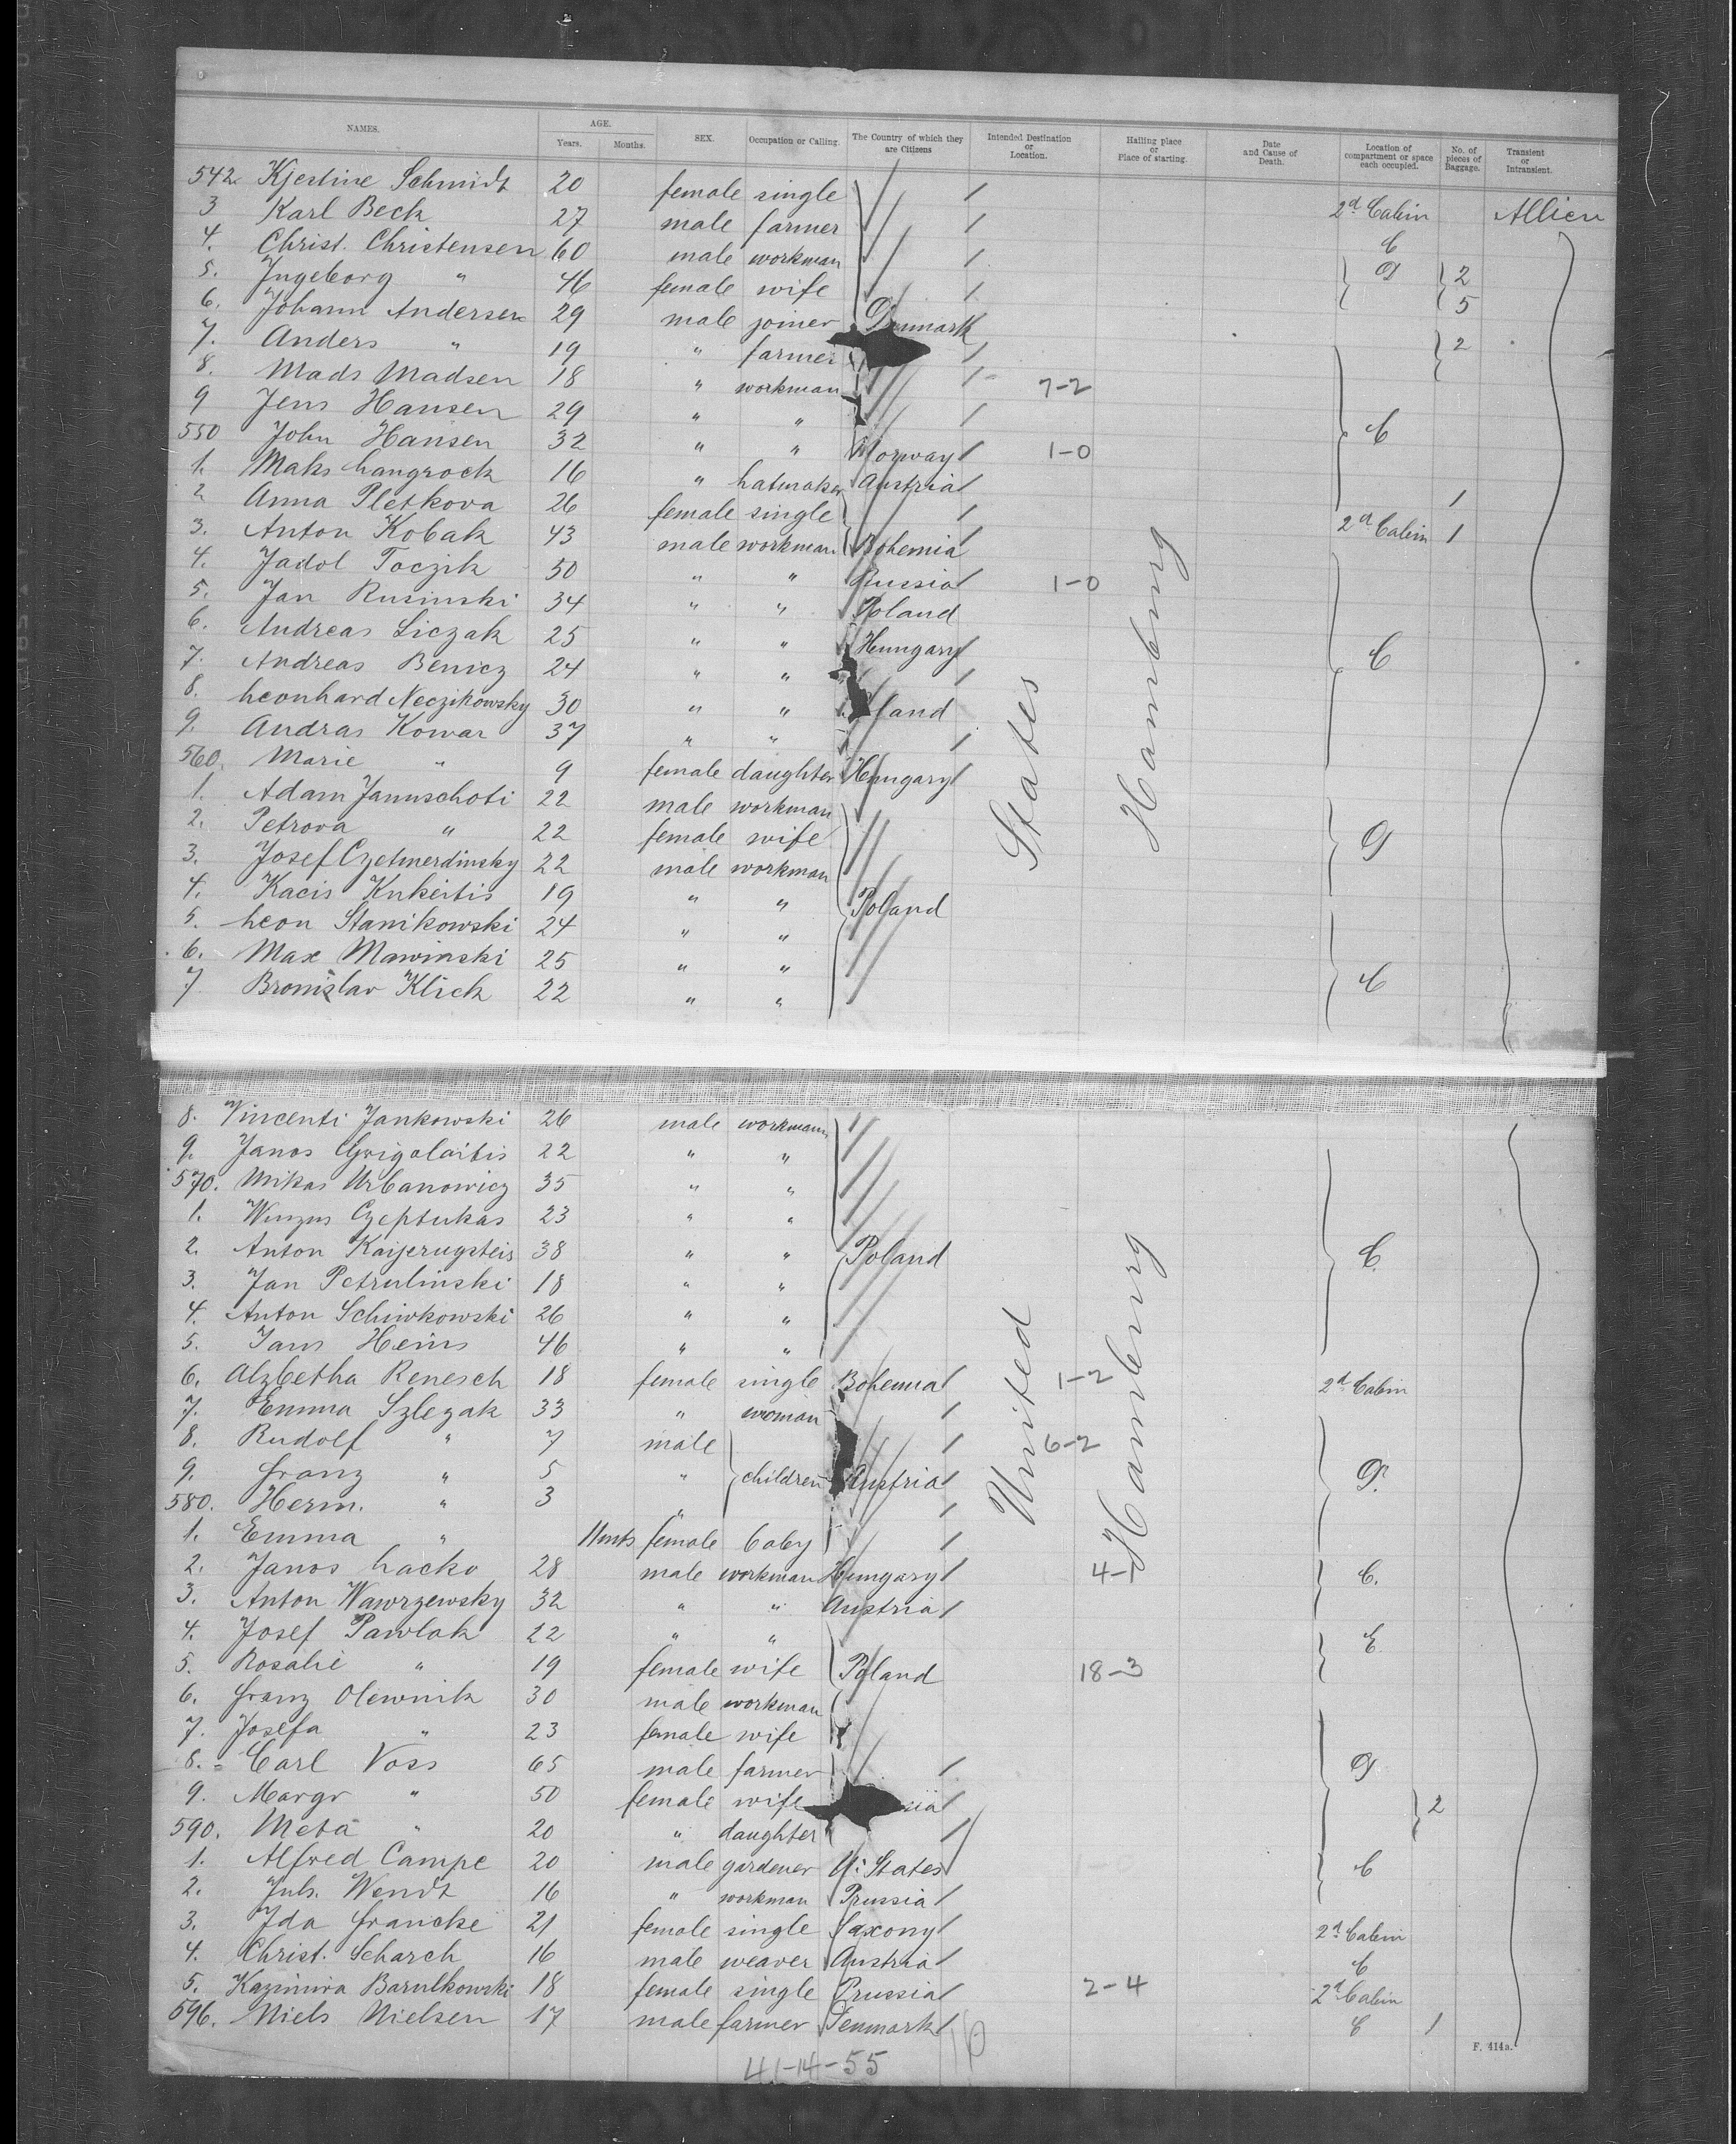 NAMES. AGE. Years. Months. SEX. Occupation or Calling. The Country of which they are Citizens Intended Destination or Location. Hailing place or Place of starting. Date and Cause of Death. Location of compartment or space each occupied. No. of pieces of Baggage. Transient or Intransient.
542. Kjestine Schmidt 20 female single / 2d Cabin Allien
3 Karl Beck 27 male farmer / C
4. Christ. Christensen 60 male workman / G 2
5. Ingeborg " 46 female wife / 5
6. Johann Andersen 29 male joiner Denmark /
7. Anders " 19 " farmer / 2
8. Mads Madsen 18 " workman / 7-2
9 Jens Hansen 29 " " / C
550 John Hansen 32 " " Norway / 1-0
1. Maks Langrock 16 " hatmaker Austria /
2 Anna Pletkova 26 female single / 2d Cabin 1
3. Anton Kobak 43 male workman Bohemia / 1
4. Jadol Toczik 50 " " Russia / 1-0
5. Jan Rusinski 34 " " Poland
6. Andreas Liczak 25 " " Hungary / C
7. Andreas Benicz 24 " " /
8. Leonhard Neczikowsky 30 " " land
9. Andras Kowar 37 " " /
560. Marie " 9 female daughter Hungary /
1. Adam Januschoti 22 male workman
2. Petrova " 22 female wife G
3. Josef Czetmerdinsky 22 male workman
4. Kacis Kukeitis 19 " " Poland
5. Leon Stanikowski 24 " "
6. Max Mawinski 25 " "
7 Bronislav Klick 22 " " C
States Hamburg
8. Vincenti Jankowski 26 male workmann
9. Janos Grigolaitis 22 " "
570. Mikas Urbanowicz 35 " "
1. Winzus Czeptukas 23 " "
2. Anton Kaijerugsteis 38 " " Poland C.
3. Jan Petrulinski 18 " "
4. Anton Schiwkowski 26 " "
5. Jans Heins 46 " "
6. Alzbetha Renesch 18 female single Bohemia / 1-2 2d Cabin
7. Emma Szlezak 33 " woman /
8. Rudolf " 7 male / 6-2
9. Franz " 5 " children Austria / G.
580. Herm. " 3 " /
1. Emma " 11 mts female baby /
2. Janos Lacko 28 male workman Hungary / 4-1 C.
3. Anton Wawrzewsky 32 " " Austria /
4. Josef Pawlak 22 " " E
5. Rosalie " 19 female wife Poland 18-3
6. Franz Olewnik 30 male workman
7. Josefa " 23 female wife
8. Carl Voss 65 male farmer / G
9. Margr " 50 female wife sia / 2
590. Meta " 20 " daughter /
1. Alfred Campe 20 male gardener U. States / C
2. Juls. Wendt 16 " workman Prussia /
3. Ida Francke 21 female single Saxony / 2d Cabin
4. Christ. Scharch 16 male weaver Austria / C
5. Kazimira Barulkowski 18 female single Prussia / 2-4 2d Cabin
596. Niels Nielsen 17 male farmer Denmark / C 1
United Hamburg
F. 414a.
41-14-55